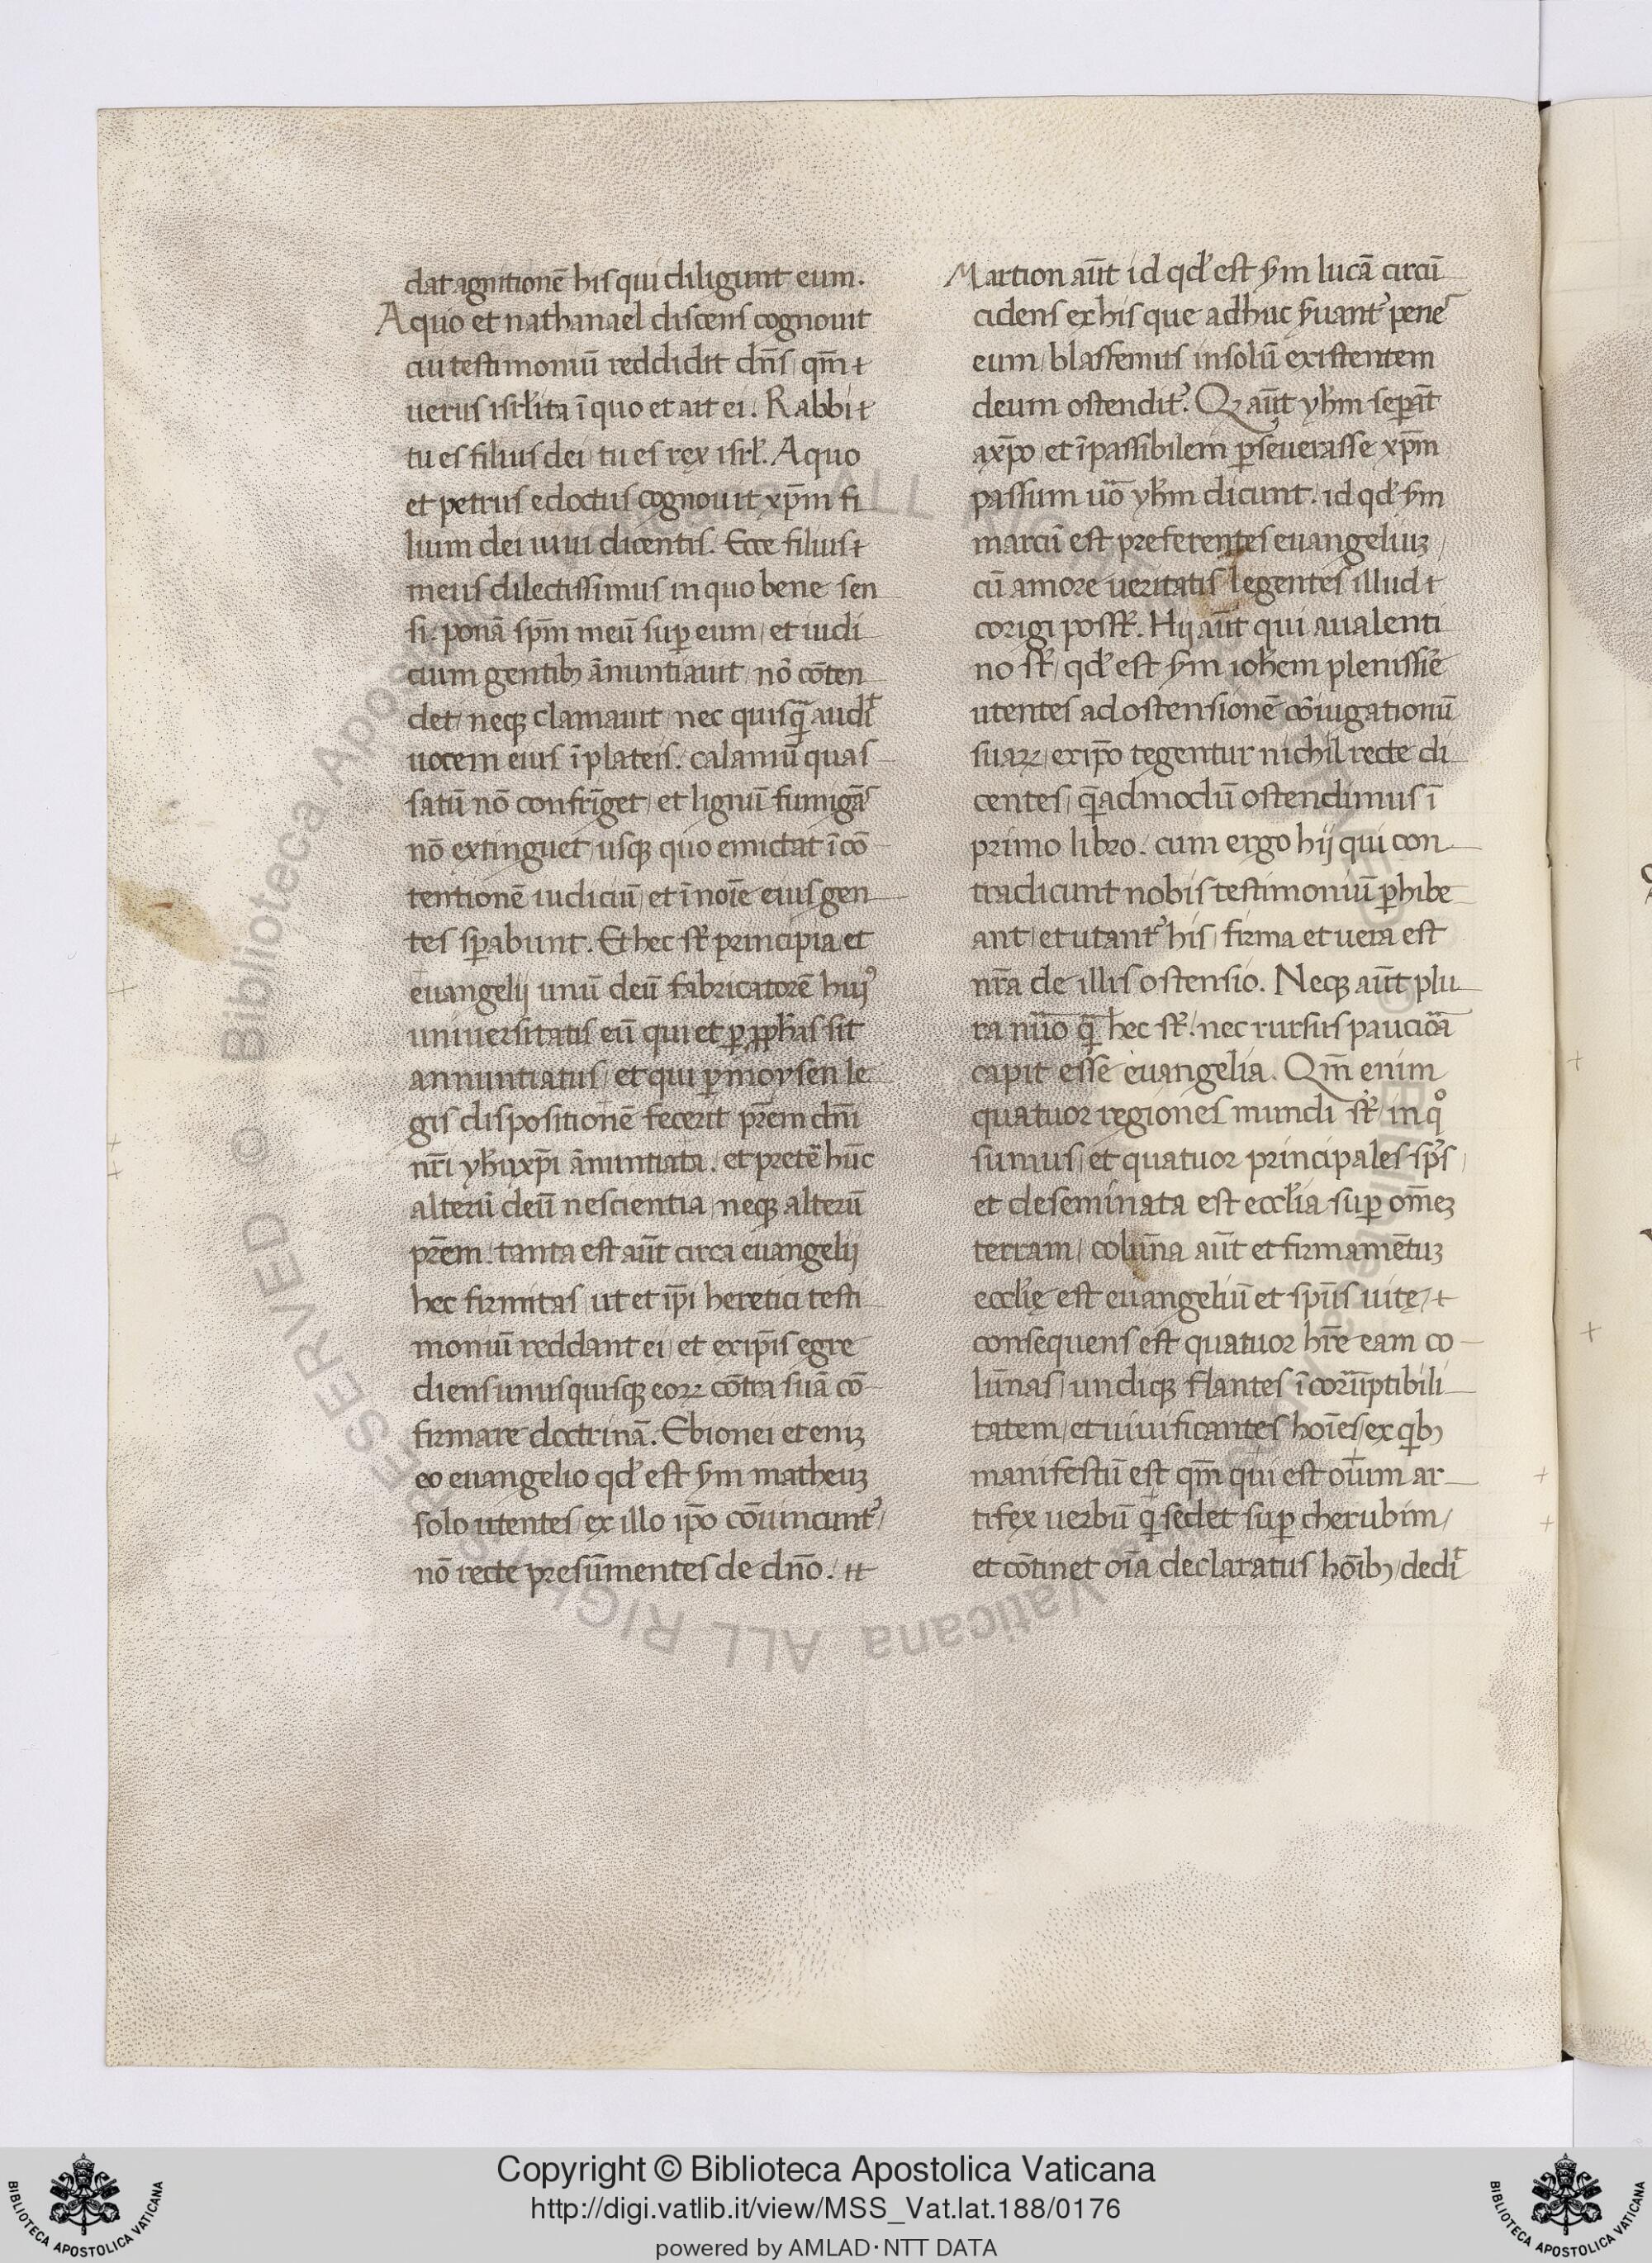 dat agnitionē his qui diligunt eum.
A quo et nathanael discens cognouit
cu testimoniū reddidit dn̄s, qm̄ t
uerus isrl̓ita ī quo et ait ei. Rabbi t
tu es filius dei, tu es rex isrl̓. A quo
et petrus edoctus cognouit xp̄m fi
lium dei uiui dicentis. Ecce filius t
meus dilectissimus in quo bene sen
si. ponā sp̄m meū suꝑ eum, et iudi
cium gentibꝫ ānuntiauit, nō cōten
det, neqꝫ clamauit, nec quisꝗ̄ audi
uocem eius ī plateis. calamū quas
satū nō confrīget, et lignū fumigās
nō extinguet, usqꝫ quo emictat ī cō
tentionē iudiciū, et ī noīe eius gen
tes sꝑabunt. Et hec st̄ principia et
euangelij unū deū fabricatorē huiꝰ
uniuersitatis eū qui et ꝑ ꝓph̓as sit
annuntiatus, et qui ꝑ moysen le
gis dispositionē fecerit pr̄em dn̄i
nr̄i yh̓u xp̄i ānuntiata. et pretē hūc
alterū deū nescientia, neqꝫ alterū
pr̄em. tanta est aūt circa euangelij
hec firmitas, ut et ip̄i heretici testi
moniū reddant ei, et ex ip̄is egre
diens unusquisqꝫ eoꝝ cōtra suā cō
firmare doctrinā. Ebionei et enī
eo euangelio qd̓ est s̄m matheuꝫ
solo utentes, ex illo ip̄o cōuincunt᷑,
nō recte presūmentes de dn̄o. tt
Martion aūt id qd̓ est s̄m lucā circū
cidens ex his que adhuc s̄uant᷑ penes
eum, blasfemus in solū existentem
deum ostendit᷑. Q aūt yh̓m seꝑāt
a xp̄o, et īpassibilem ꝑseuerasse xp̄m
passum uō yh̓m dicunt. id qd̓ s̄m
marcū est preferentes euangeliuꝫ,
cū amore ueritatis legentes illud t
corigi posst̓. Hij aūt qui a ualenti
no st̓, qd̓ est s̄m ioh̓em plenissīe
utentes ad ostensionē cōiugationū
suaꝝ, ex ip̄o tegentur nichil recte di
centes, q̄admodū ostendimus ī
primo libro. cum ergo hij qui con
tradicunt nobis testimoniū ꝑhibe
ant, et utant᷑ his, firma et uera est
nr̄a de illis ostensio. Neqꝫ aūt plu
ra nūo ꝗ̄ hec st̓. nec rursus pauciōa
capit esse euangelia. Qm̄ enim
quatuor regiones mundi st̓, in qͦ
sumus, et quatuor principales sp̄s,
et deseminata est eccl̓ia suꝑ om̄eꝫ
terram, colūna aūt et firmamētuꝫ
eccl̓ię est euangeliū et sp̄us uitę, t
consequens est quatuor hr̄e eam co
lūnas, undiqꝫ flantes ī coruptibili
tatem, et uiuificantes hoīes, ex qibꝫ
manifestū est qm̄ qui est oīum ar
tifex uerbū q̄ sedet suꝑ cherubim,
et cōtinet oīa declaratus hoībꝫ, dedit
Copyright © Biblioteca Apostolica Vaticana
http://digi.vatlib.it/view/MSS_Vat.lat.188/0176
powered by AMLAD·NTT DATA
BIBLIOTECA APOSTOLICA VATICANA
BIBLIOTECA APOSTOLICA VATICANA